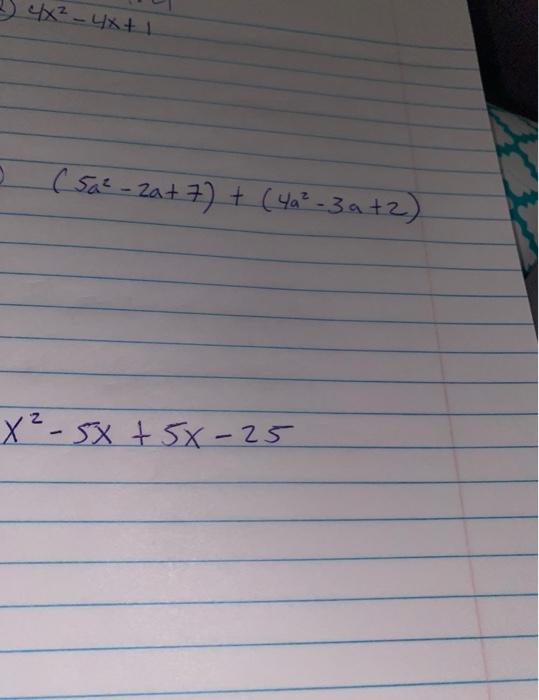 4x² - 4x + 1
(5a² - 2a + 7) + (4a² - 3a + 2)
x² - 5x + 5x - 25